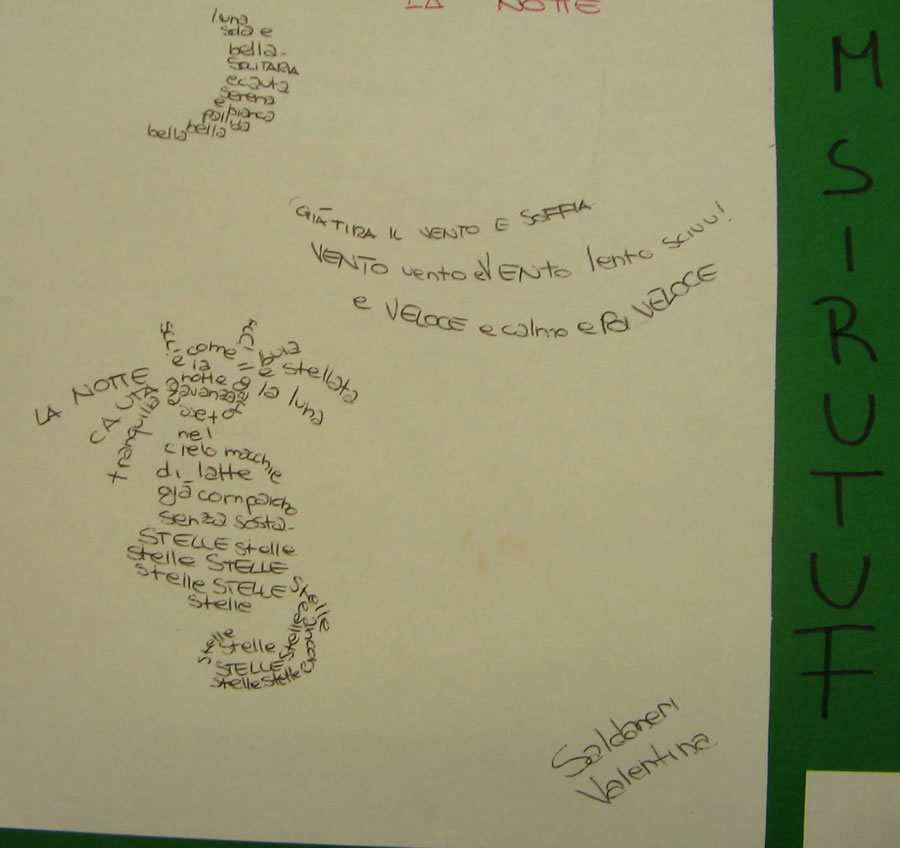 LA NOTTE
luna
sola e
bella-
SOLITARIA
e cauta
serena
e
poi bianca
bella bella
GIÀ TIRA IL VENTO E SOFFIA
VENTO vento e VENTO lento
e VELOCE e calmo e Poi VELOCE
LA NOTTE
CAUTA
tranquilla
come
e la
notte
avanza
nel
cielo macchie
di latte
già
senza sosta-
STELLE stelle
stelle STELLE
stelle STELLE stelle
stelle
buia
e stellata
la luna
stelle stelle
STELLE stelle
stelle stelle
Valentina
M
S
I
R
U
T
U
T